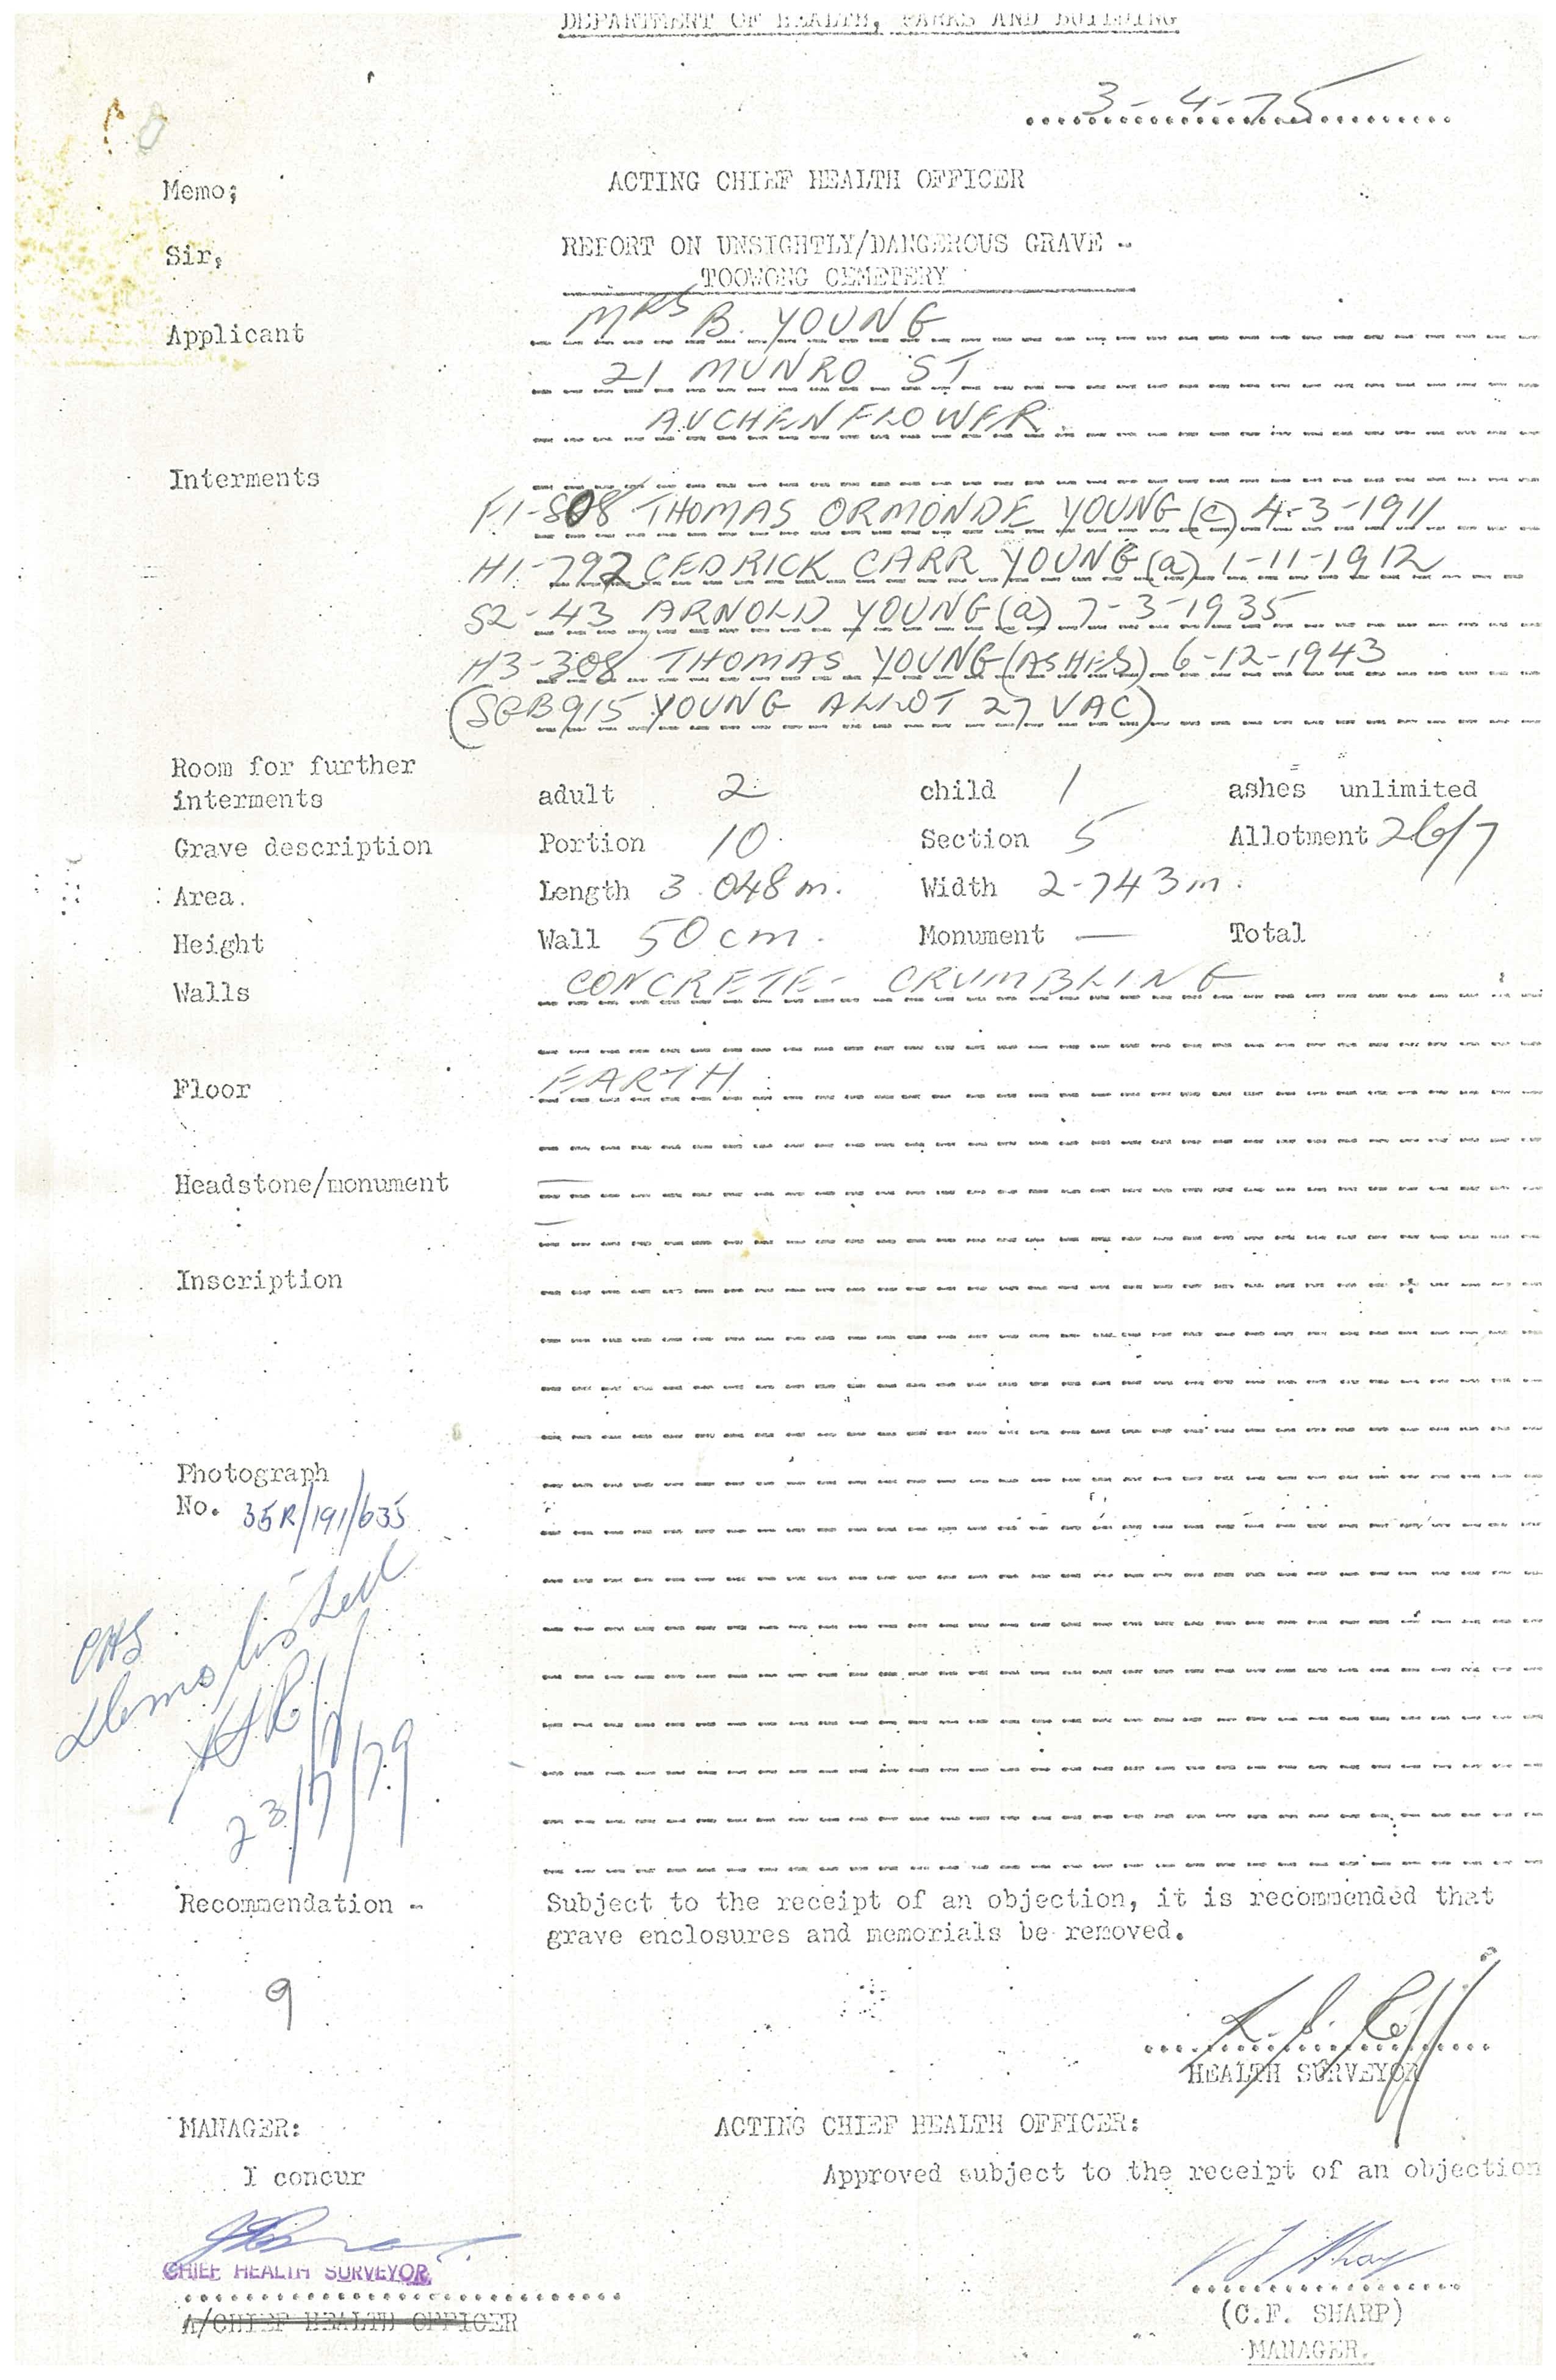 DEPARTMENT OF HEALTH, PARKS AND BUILDING
3-4-75
Memo; ACTING CHIEF HEALTH OFFICER
Sir, REPORT ON UNSIGHTLY/DANGEROUS GRAVE -
TOOWONG CEMETERY
Applicant MRS B. YOUNG
21 MUNRO ST
AUCHENFLOWER
Interments
F1-808 THOMAS ORMONDE YOUNG (c) 4-3-1911
H1-792 CEDRICK CARR YOUNG (a) 1-11-1912
S2-43 ARNOLD YOUNG (a) 7-3-1935
H3-308 THOMAS YOUNG (ASHES) 6-12-1943
(SGB915 YOUNG ALLOT 27 VAC)
Room for further
interments adult 2 child 1 ashes unlimited
Grave description Portion 10 Section 5 Allotment 26/7
Area. Length 3.048 m. Width 2-743 m.
Height Wall 50 cm. Monument — Total
Walls CONCRETE - CRUMBLING
Floor EARTH
Headstone/monument —
—
Inscription
Photograph
No. 35R/191/635
CHS
Demolished
23/7/79
Recommendation - Subject to the receipt of an objection, it is recommended that
grave enclosures and memorials be removed.
9
HEALTH SURVEYOR
MANAGER: ACTING CHIEF HEALTH OFFICER:
I concur Approved subject to the receipt of an objection
CHIEF HEALTH SURVEYOR
A/CHIEF HEALTH OFFICER
(C.F. SHARP)
MANAGER.